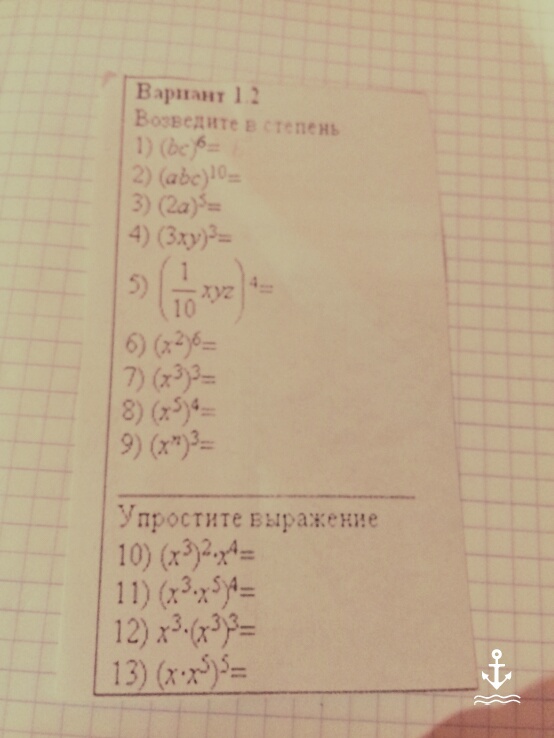 Вариант 1.2
Возведите в степень
1) (bc)⁶=
2) (abc)¹⁰=
3) (2a)⁵=
4) (3xy)³=
5) (1/10 xyz)⁴=
6) (x²)⁶=
7) (x³)³=
8) (x⁵)⁴=
9) (xⁿ)³=
Упростите выражение
10) (x³)²·x⁴=
11) (x³·x⁵)⁴=
12) x³·(x³)³=
13) (x·x⁵)⁵=